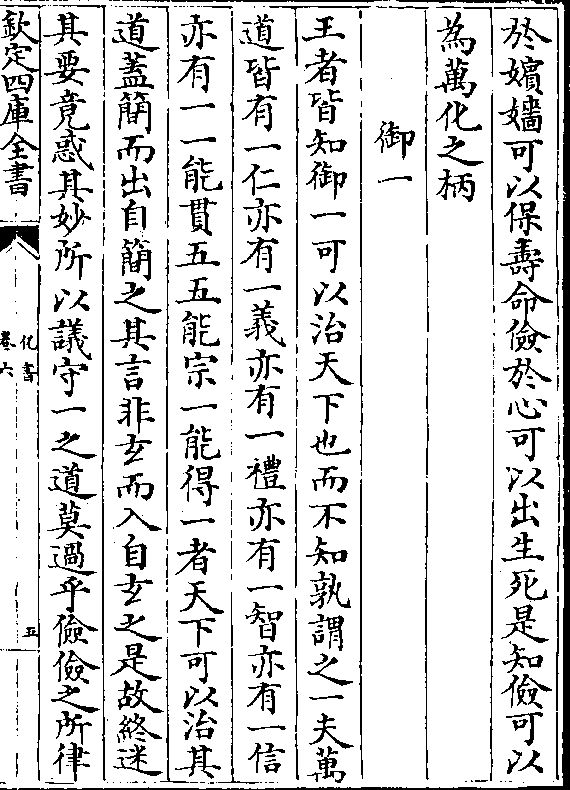 於嬪嬙可以保壽命儉於心可以出生死是知儉可以
為萬化之柄
御一
王者皆知御一可以治天下也而不知孰謂之一夫萬
道皆有一仁亦有一義亦有一禮亦有一智亦有一信
亦有一一能貫五五能宗一能得一者天下可以治其
道蓋簡而出自簡之其言非玄而入自玄之是故終迷
其要竟惑其妙所以議守一之道莫過乎儉儉之所律
欽定四庫全書
化書
卷六
五